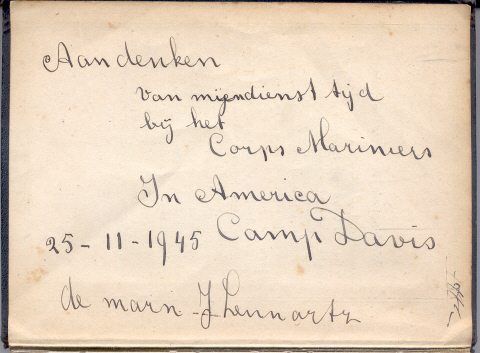 Aandenken
van mijendienst tijd
bij het
Corps Mariniers
In America
25-11-1945 Camp Davis
de marn. J Lennartz